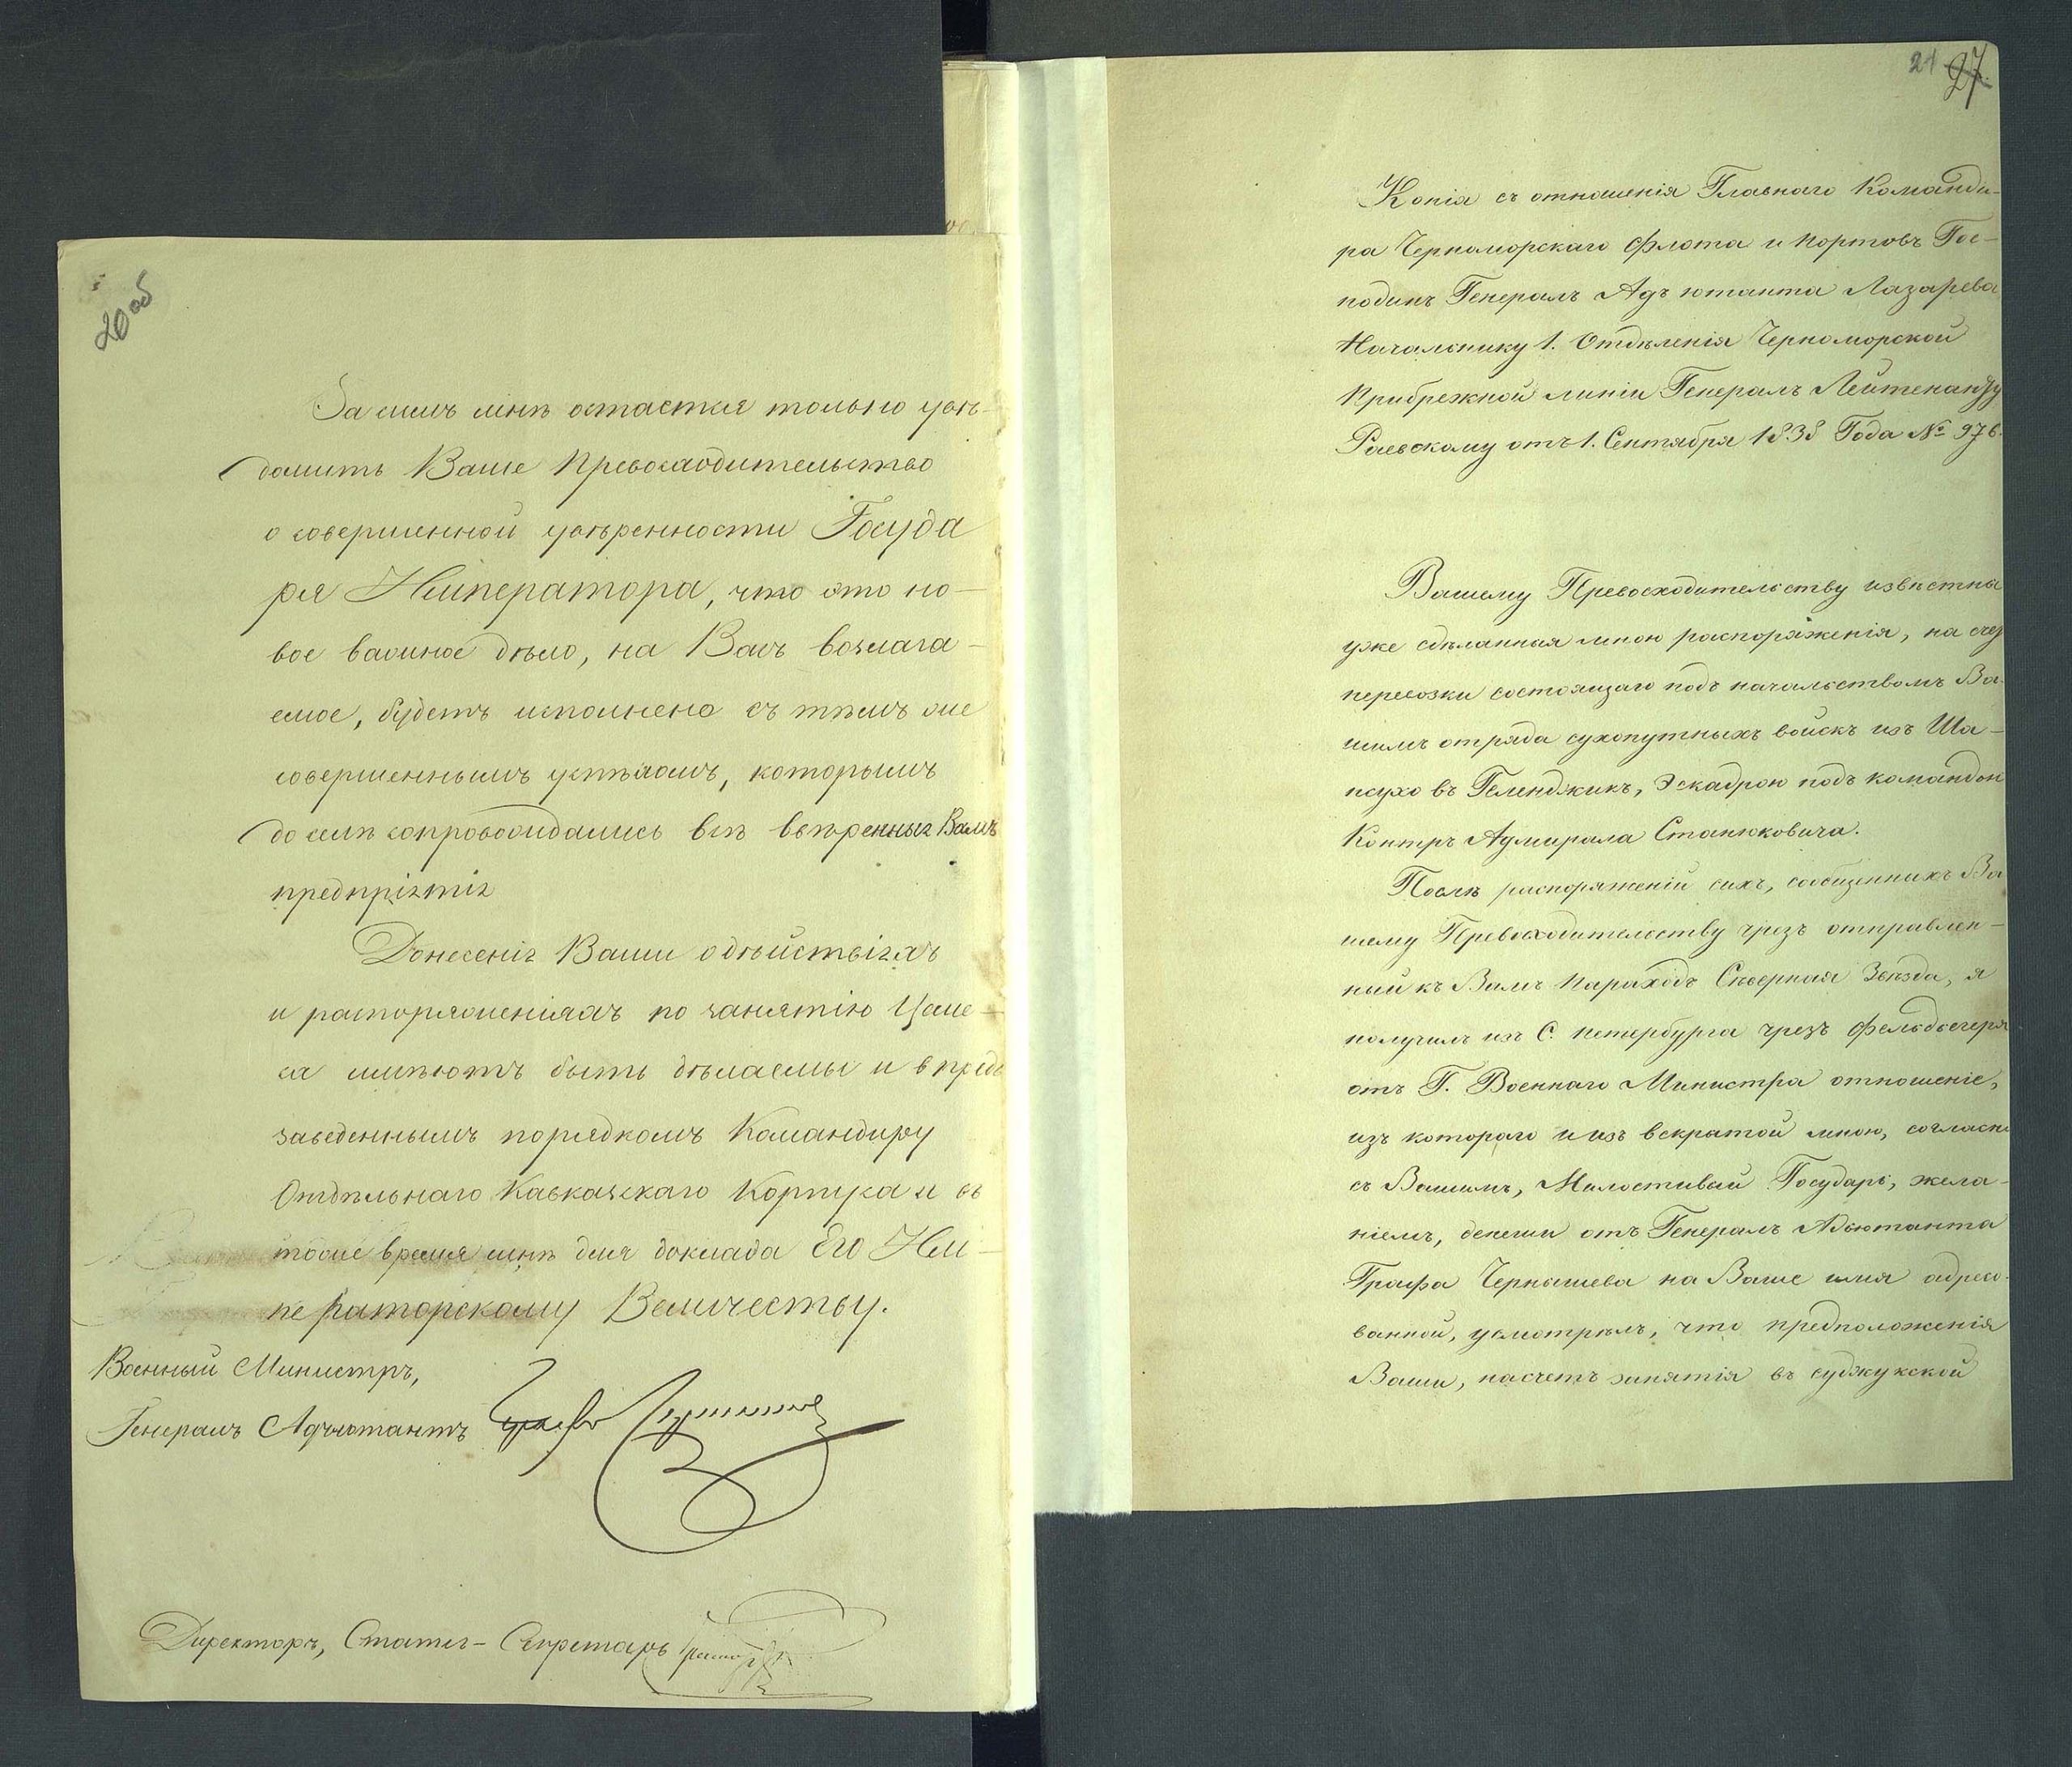 20 об
За симъ мнѣ остается только увѣ-
домить Ваше Превосходительство
о совершенной увѣренности Госуда
ря Императора, что это но-
вое важное дѣло, на Васъ возлага-
емое, будетъ исполнено съ тѣмъ же
совершеннымъ успѣхомъ, которымъ
до селѣ сопровождались всѣ ввѣренныя Вамъ
предпріятія
Донесенія Ваши о дѣйствіяхъ
и распоряженіяхъ по занятію Цеме-
са имѣютъ быть дѣлаемы и впредь
заведеннымъ порядкомъ Командиру
Отдѣльнаго Кавказскаго Корпуса и въ
тоже время мнѣ для доклада Его Им-
ператорскому Величеству.
Военный Министръ,
Генералъ Адъютантъ Графъ Чернышев
Директоръ, Статсъ-Секретарь
21 27
Копія съ отношенія Главнаго Команди-
ра Черноморскаго Флота и портовъ Гос-
подинъ Генералъ Адъютанта Лазарева
Начальнику 1. Отдѣленія Черноморской
Прибрежной линіи Генералъ Лейтенанту
Раевскому отъ 1. Сентября 1838 Года № 976.
Вашему Превосходительству извѣстны
уже сдѣланныя мною распоряженія, на счет
перевозки состоящаго подъ начальствомъ Ва-
шимъ отряда сухопутныхъ войскъ изъ Ша-
псухо въ Геленджикъ, Эскадрою подъ командою
Контръ Адмирала Станюковича.
Послѣ распоряженій сихъ, сообщенныхъ Ва
шему Превосходительству чрезъ отправлен-
ный къ Вамъ пароходъ Сѣверная Звѣзда, я
получилъ изъ С. Петербурга чрезъ Фельдъегеря
отъ Г. Военнаго Министра отношеніе,
изъ котораго и изъ вскрытой мною, согласно
съ Вашимъ, Милостивый Государь, жела-
ніемъ, депеши отъ Генералъ Адьютанта
Графа Чернышева на Ваше имя адресо-
ванной, усмотрѣлъ, что предположенія
Ваши, насчетъ занятія въ суджукской